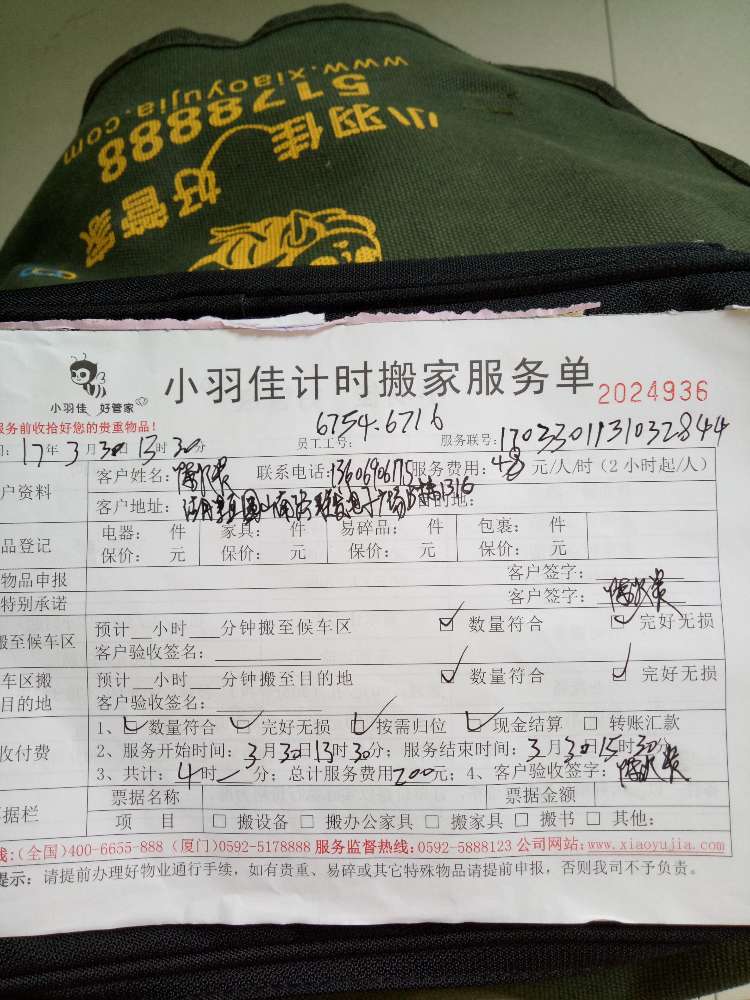 www.xiaoyujia.com
5178888
小羽佳 好管家
小羽佳 好管家
小羽佳计时搬家服务单
2024936
服务前收拾好您的贵重物品!
17年3月30日13时30分
员工工号:
6754.6716
服务联号:
1703301131032844
户资料
客户姓名:
联系电话:13606906175
服务费用:48元/人/时(2小时起/人)
客户地址:
目的地:
品登记
电器: 件 家具: 件 易碎品: 件 包裹: 件
保价: 元 保价: 元 保价: 元 保价: 元
物品申报
客户签字:
特别承诺
客户签字:
搬至候车区
预计__小时___分钟搬至候车区 ☑ 数量符合 ☑ 完好无损
客户验收签名:
车区搬
目的地
预计__小时___分钟搬至目的地 ☑ 数量符合 ☑ 完好无损
客户验收签名:
收付费
1、☑ 数量符合 ☑ 完好无损 ☑ 按需归位 ☑ 现金结算 □ 转账汇款
2、服务开始时间:3月30日13时30分;服务结束时间:3月30日15时30分
3、共计:4时一分;总计服务费用200元;4、客户验收签字:
票据栏
票据名称 票据金额
项 目 □ 搬设备 □ 搬办公家具 □ 搬家具 □ 搬书 □ 其他:
线:(全国)400-6655-888 (厦门)0592-5178888 服务监督热线:0592-5888123 公司网站:www.xiaoyujia.com
提示:请提前办理好物业通行手续,如有贵重、易碎或其它特殊物品请提前申报,否则我司不予负责。